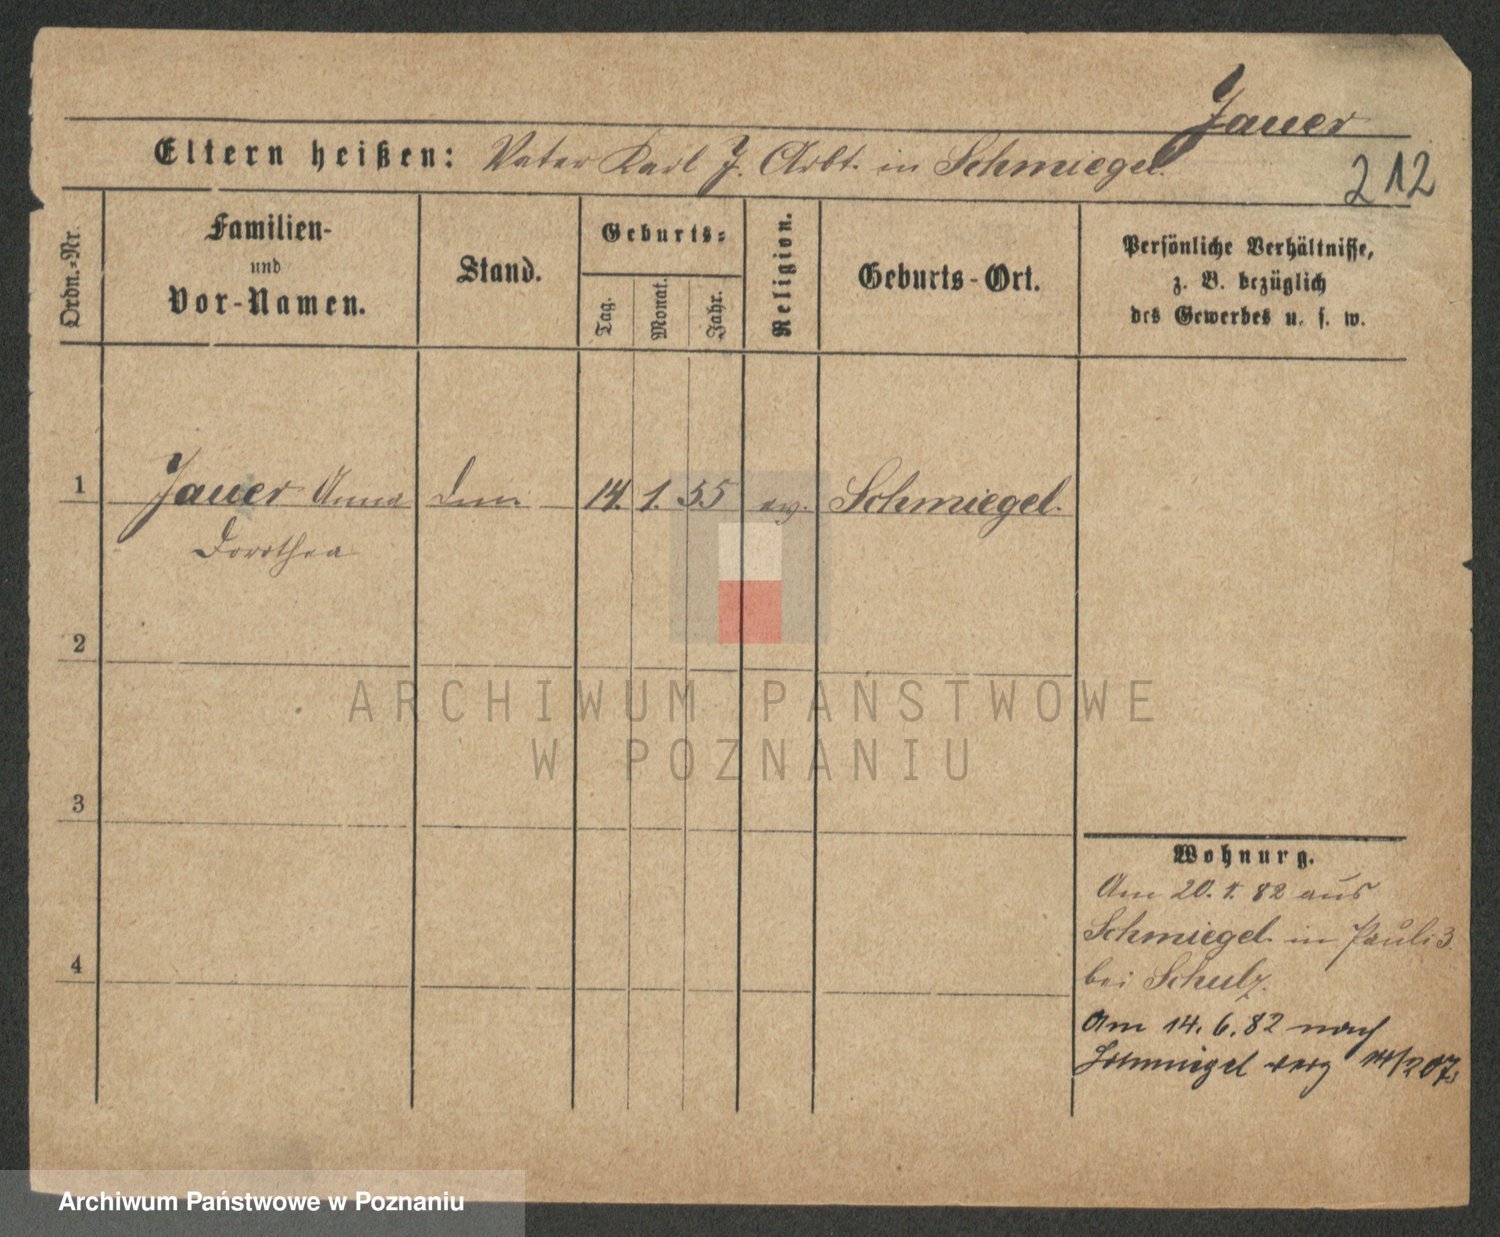 Jauer
Eltern heißen: Vater Karl J. Arbt. in Schmiegel.
212
Ordn.-Nr.
Familien-
und
Vor-Namen.
Stand.
Geburts-
Tag.
Monat.
Jahr.
Religion.
Geburts-Ort.
Persönliche Verhältnisse,
z. B. bezüglich
des Gewerbes u. s. w.
1 Jauer Anna 14. 1. 55 ev. Schmiegel.
Dorothea
2
3
4
Wohnung.
Am 20. 1. 82 aus
Schmiegel in Pauli 3
bei Schulz.
Am 14. 6. 82 nach
Schmiegel verz
ARCHIWUM PAŃSTWOWE
W POZNANIU
Archiwum Państwowe w Poznaniu